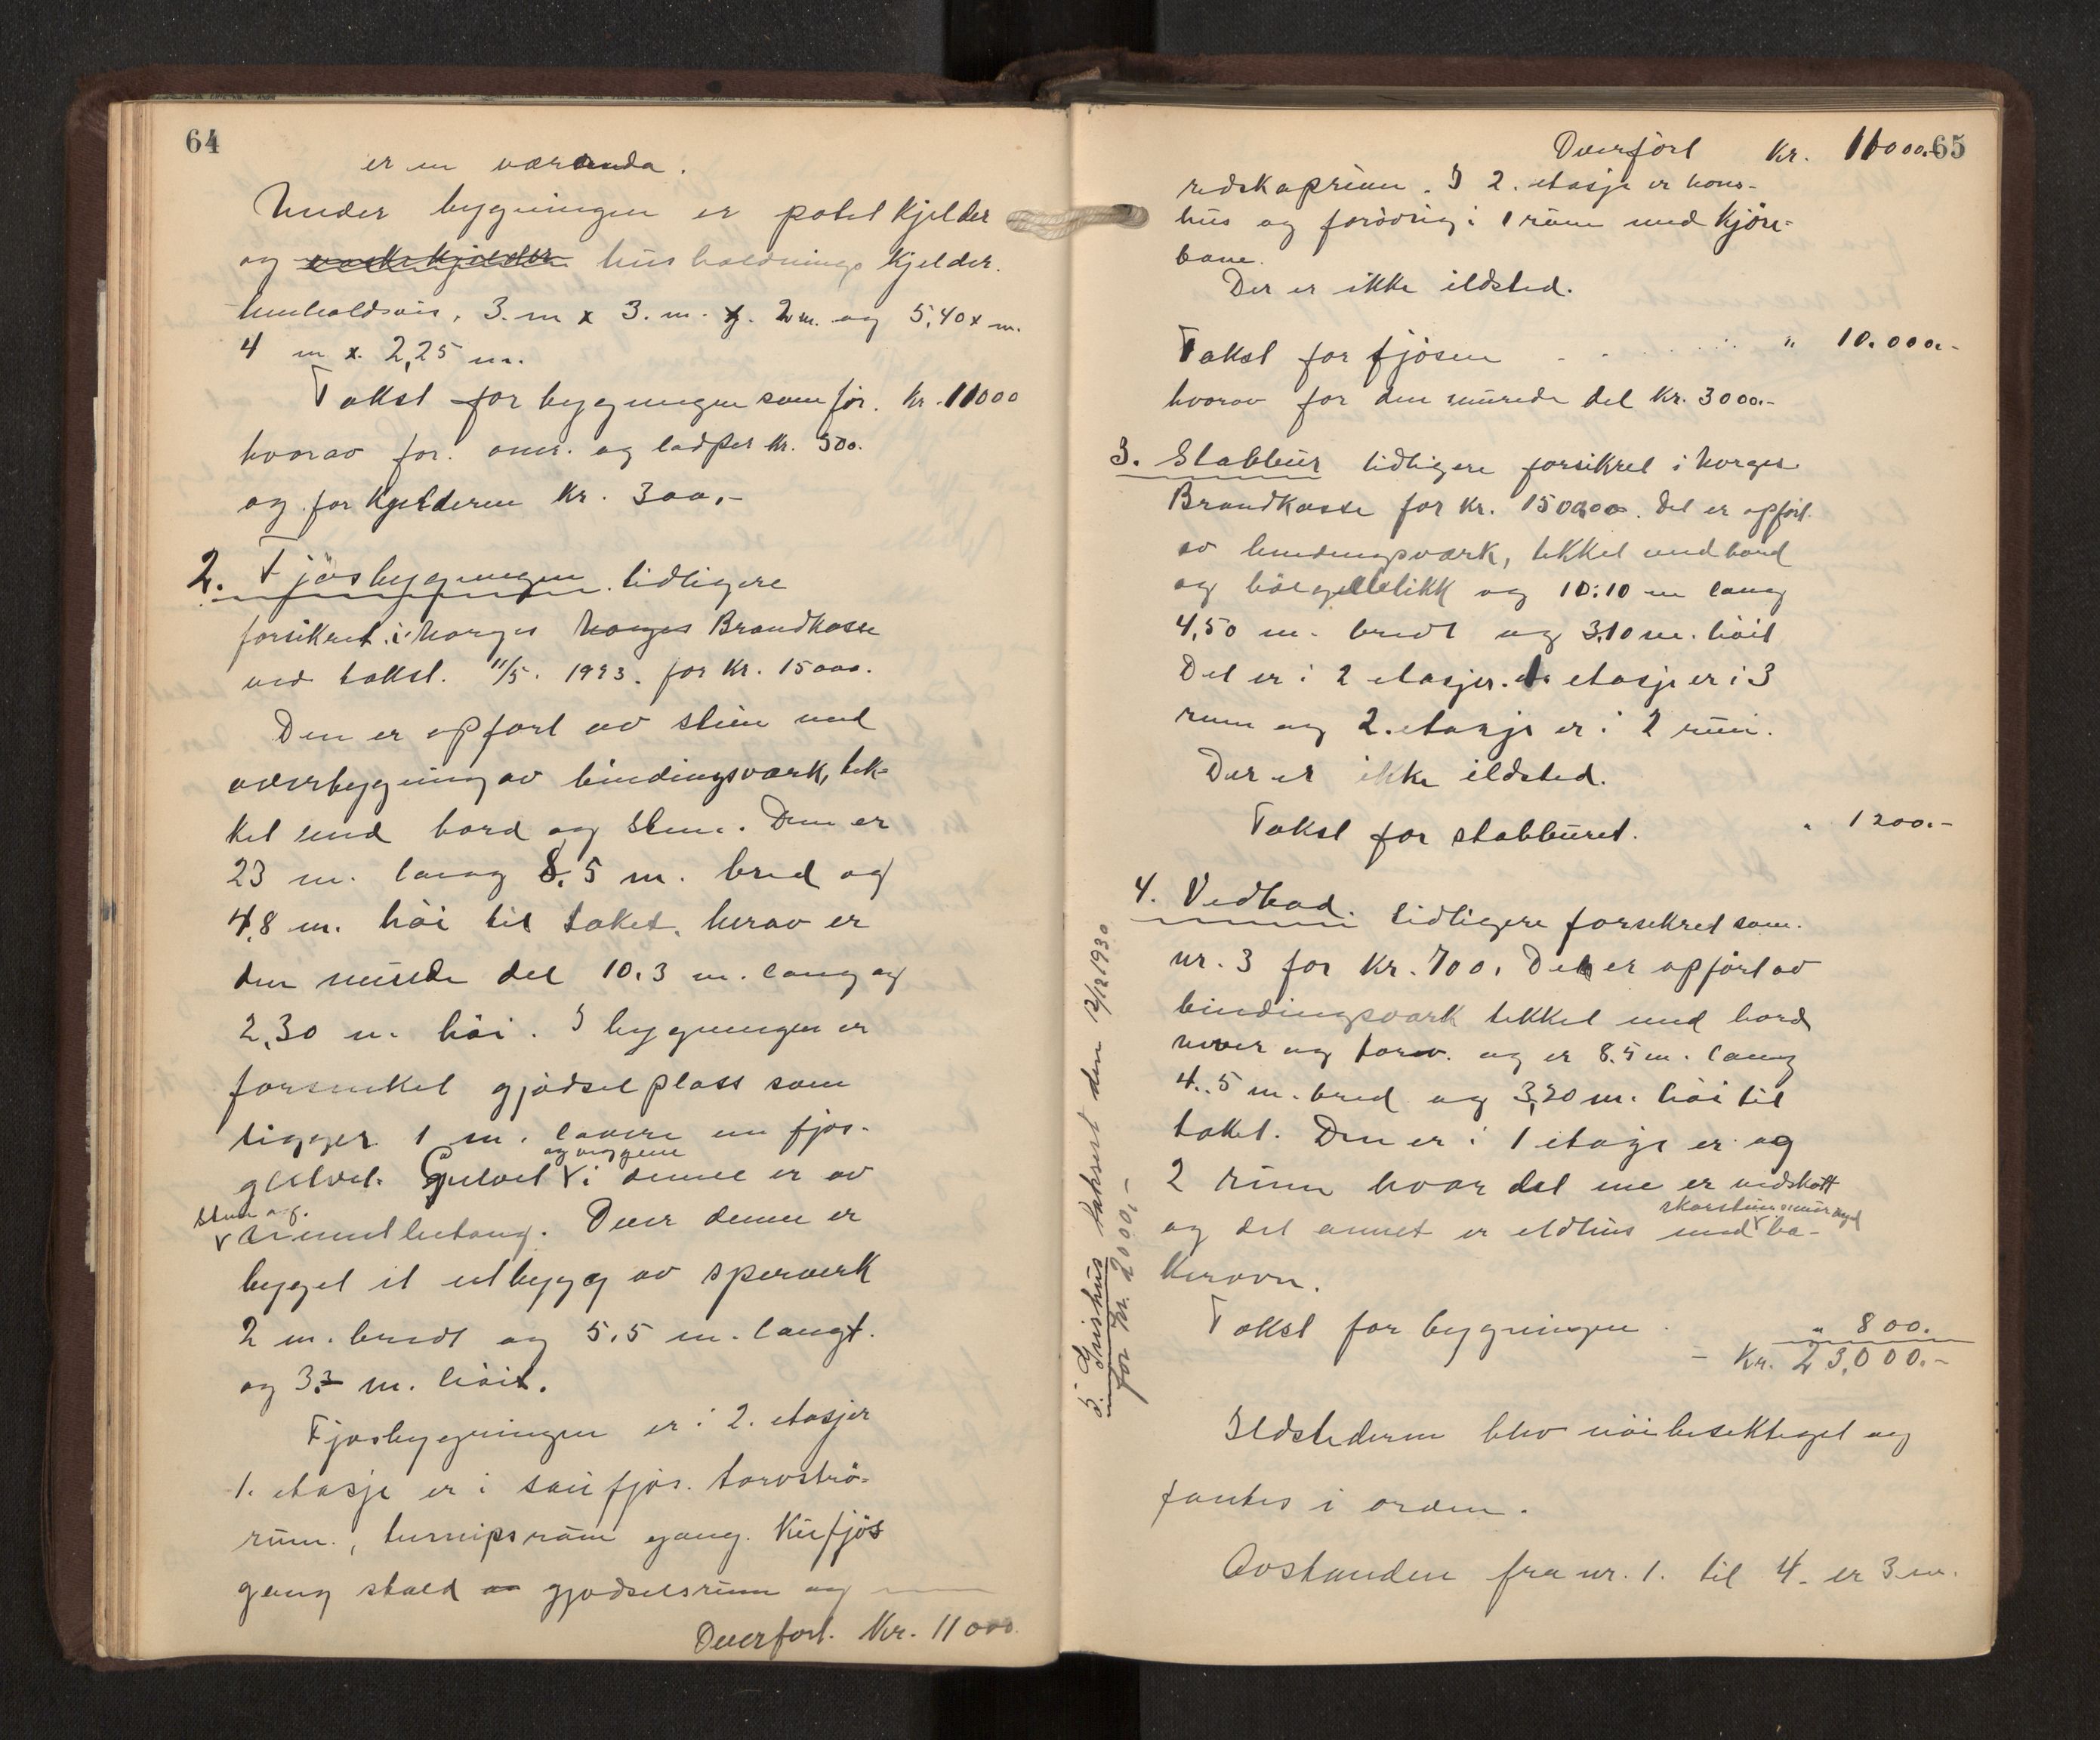 64
er en væranda.
Under bygningen er potet kjelder
og vaskekjelder husholdnings kjelder.
henholdsvis, 3. m x 3. m. x. 2 m. og 5,40 x m.
4 m x. 2,25 m.
Takst for bygningen som før. kr. 11000
hvorav for. omr. og ladper kr. 500.
og for kjelderen kr. 300,-
2. Fjøsbygningen. tidligere
forsikret i Norges Norges Brandkasse
ved takst. 11/5. 1923. for kr. 15000.
Den er opført av sten med
overbygning av bindingsværk, tek-
ket med bord og sten. Den er
23 m. lang 8,5 m. bred og
4,8 m. høi til taket, herav er
den murede del 10,3 m. lang og
2,30 m. høi. I bygningen er
forsenket gjødselplass som
ligger 1 m. lavere en fjøs-
og veggene
gulvet. Gulvet i denne er av
sten og.
sementbetong. Over denne er
bygget et utbygg av sperverk
2 m. bredt og 5,5 m. langt.
og 3,3 m. høit.
Fjøsbygningen er i 2. etasjer
1. etasje er i saufjøs. torvstrø-
rum., turnipsrum gang. Kufjøs
gang stald og gjødselsrum og
Overført. Kr. 11000.
65
Overført kr. 11000.-
redskaprum. I 2. etasje er høns-
hus og forøvrig i 1 rum med kjøre-
bane.
Der er ikke ildsted.
Takst for fjøsen - . . . . . " 10.000.-
hvorav for den murede del kr. 3000.-
3. Stabbur tidligere forsikret i Norges
Brandkasse for kr. 1500,00. Det er opført
av bindingsværk, tekket med bord
og bølgeblikk og 10,10 m lang
4,50 m. bredt og 3,10 m. høit
Det er i 2 etasjer. 1. etasje er i 3
rum og 2. etasje er i 2 rum.
Der er ikke ildsted.
Takst for stabburet. " 1200.-
4. Vedbod. tidligere forsikret som.
nr. 3 for kr. 700. Den er opført av
bindingsverk tekket med bord
never og torv. og er 8.5 m. lang
4..5 m. bred og 3,20 m. høi til
taket. Den er i 1 etasje er og
2 rum hvor det ene er vedskott
skorsten, omr. og
og det annet er eldhus med ba-
kerovn.
Takst for bygningen . " 800.
- Kr. 23,000.-
Ildstederne blev nøibesiktiget og
fantes i orden.
Avstanden fra nr. 1. til 4. er 3 m.
5. Grishus taksert den 12/12 1930
for kr. 2000,-